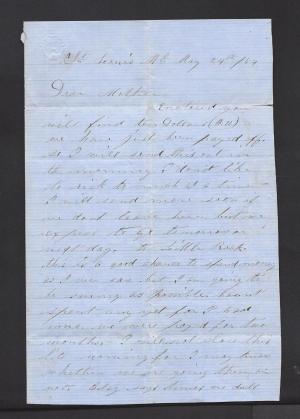 St Louis Mo May 24th /64
Dear Mother
Enclosed you
will find ten Dollars ($10)
we have just been payed off.
so I will send this out in
the morning I dont like
to risk to much at a time
I will send more soon if
we dont leave here but we
expect to go tomorrow or
next day. to Little Rock
this is a good chance to spend money
as I ever saw but I am going to
be saving as possible, havent
spent any yet for I had
none. we were payed for two
months. I will not close this
till morning for I may know
whether we are going there or
not.